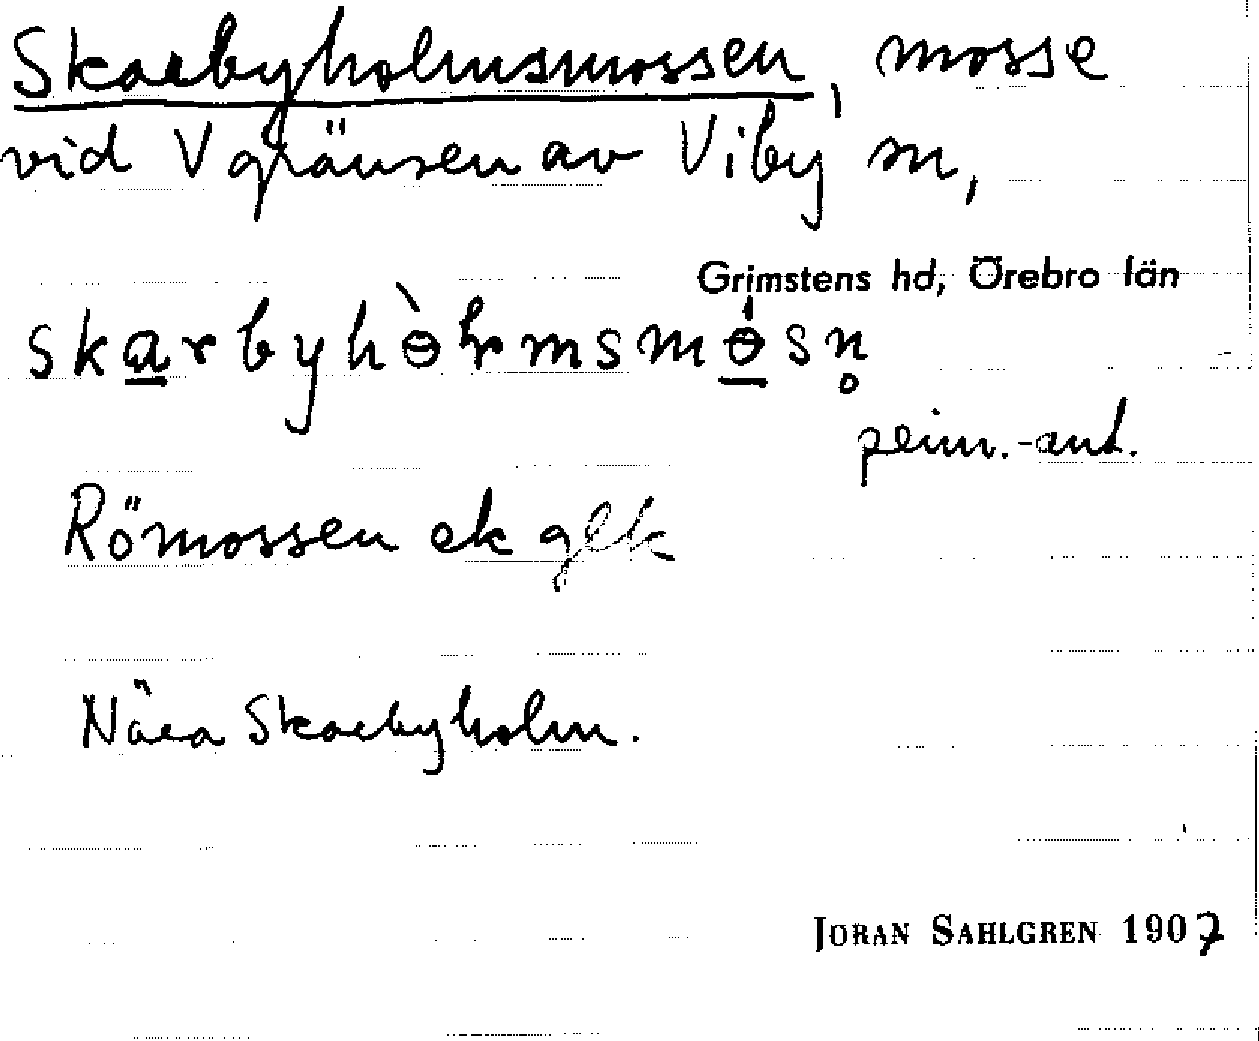 Skarbyholmsmossen, mosse
vid V gränsen av Viby sn,
Grimstens hd, Örebro län
primr.-ant.
Römossen ek glk
Nära Skarbyholm.
JÖRAN SAHLGREN 1907